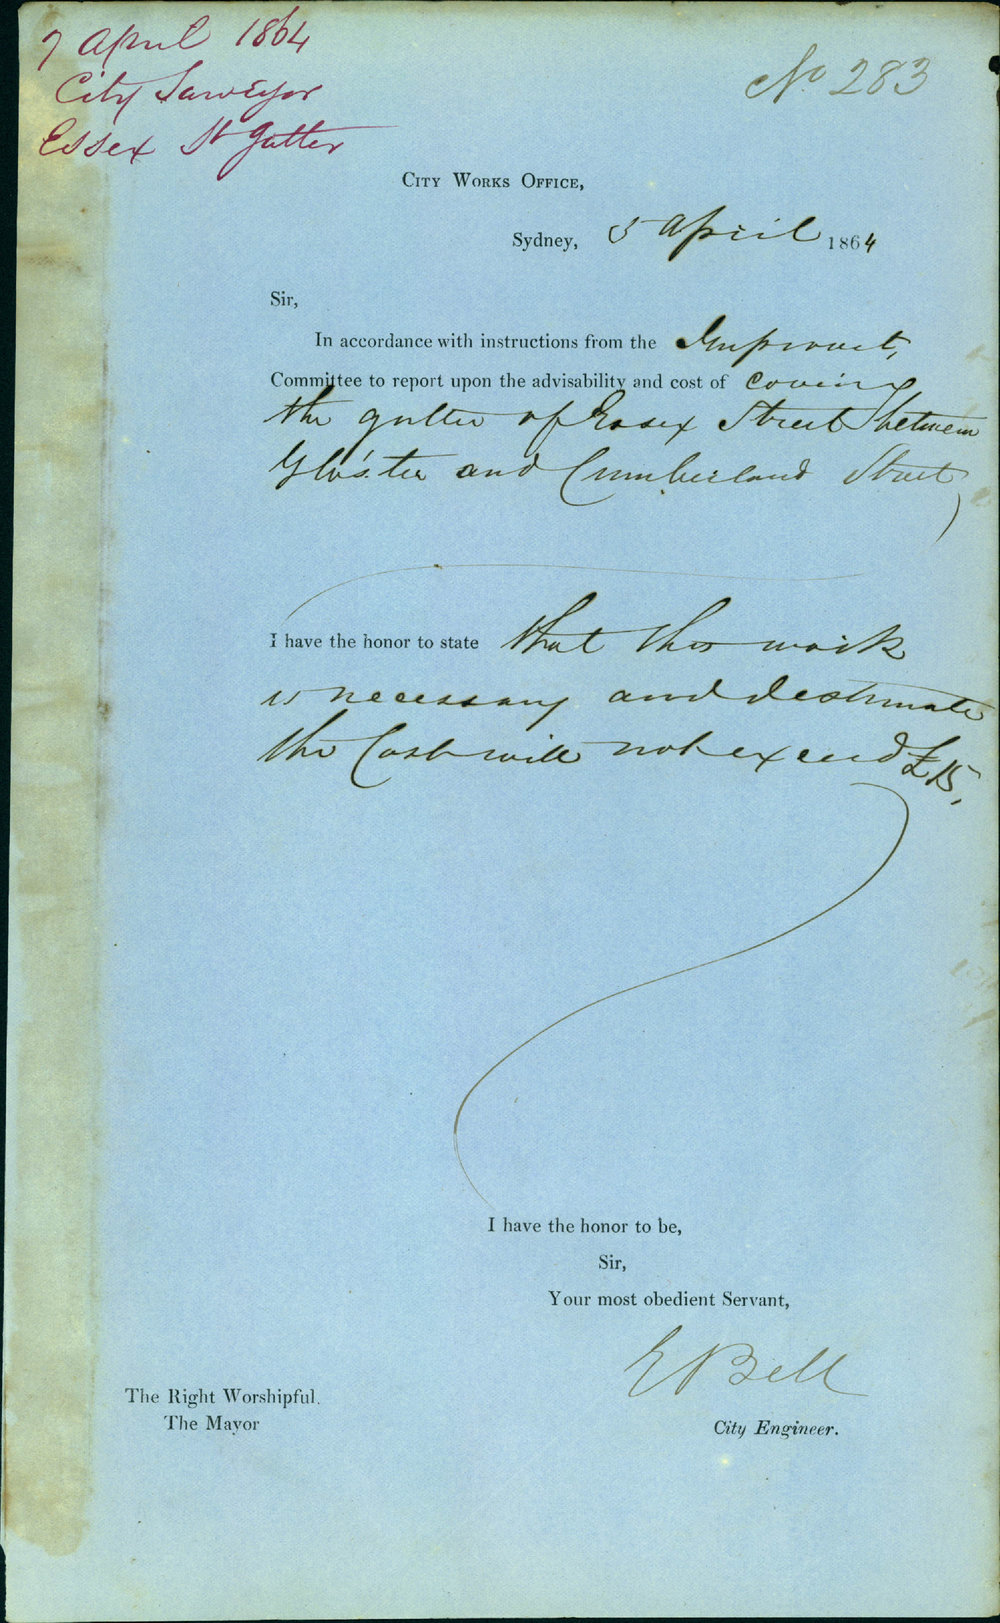 7 April 1864
City Surveyor
Essex St Gutter
No. 283
City Works Office,
Sydney, 5 April 1864
Sir,
In accordance with instructions from the Improvmt,
Committee to report upon the advisability and cost of covering
the gutter of Essex Street between
Glo'ster and Cumberland Street,
I have the honor to state that this work
is necessary and I estimate
the Cost will not exceed £15,
I have the honor to be,
Sir,
Your most obedient Servant,
E Bell
City Engineer.
The Right Worshipful.
The Mayor